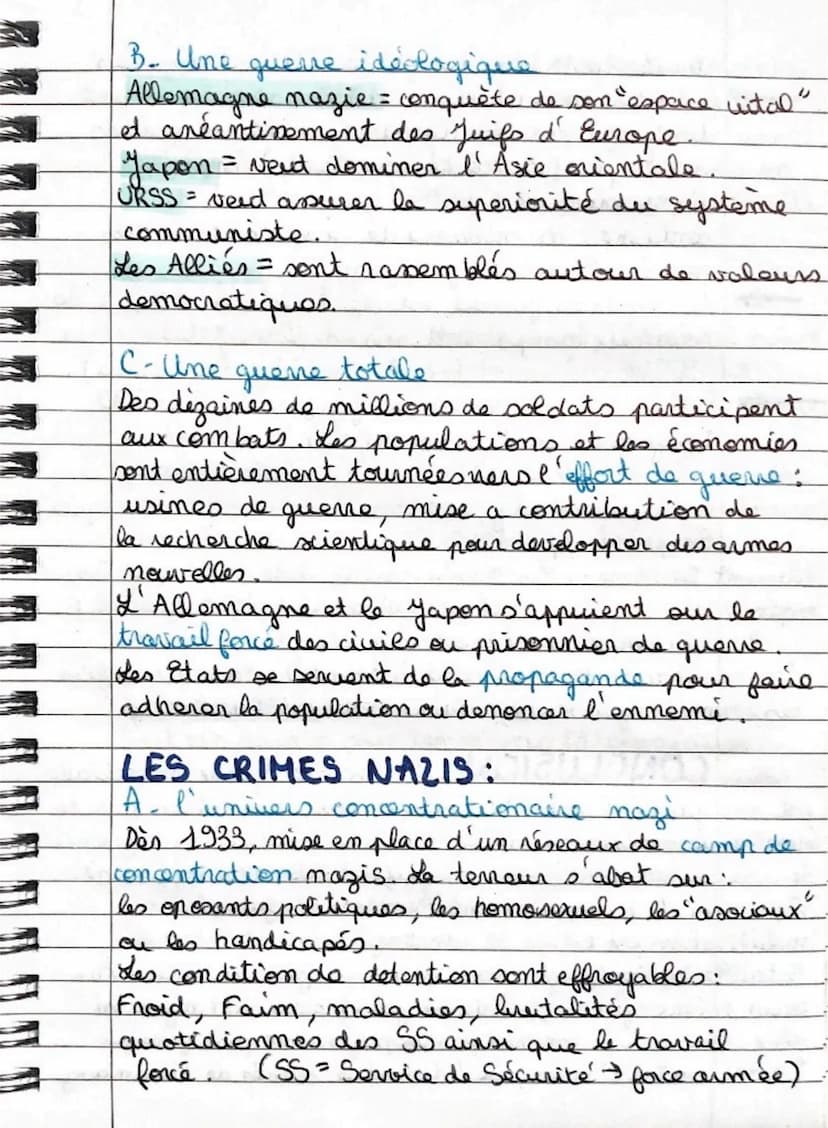 B- Une guerre idéologique
Allemagne nazie = conquète de son "espace vital"
et anéantissement des Juifs d' Europe.
Japon = veut dominer l' Asie orientale.
URSS = veud assurer la superiorité du système
communiste.
Les Alliés = sont rassemblés autour de valeurs
democratiques.
C- Une guerre totale
Des dizaines de millions de soldats participent
aux combats. Les populations et les économies
sont entièrement tournées vers l'effort de guerre :
usines de guerre, mise a contribution de
la recherche sciendique pour developper des armes
nouvelles.
L' Allemagne et le Japon s'appuient sur le
travail forcé des civils ou prisonnier de guerre.
Les Etats se servent de la propagande pour faire
adherer la population ou denoncer l'ennemi.
LES CRIMES NAZIS :
A- l'univers concentrationaire nazi
Dès 1933, mise en place d'un réseaux de camp de
concentration nazis. La terreur s'abat sur :
les oposants politiques, les homosexuels, les "asociaux"
ou les handicapés.
Les condition de detention sont effroyables :
Froid, Faim, maladies, brutalités
quotidiennes des SS ainsi que le travail
forcé. (SS = Service de Sécurité → force armée)